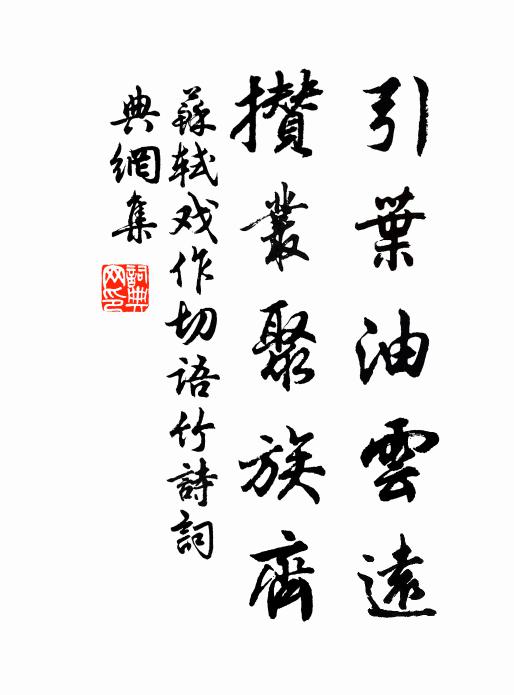 引葉油雲遠
攢叢聚族齊
蘇軾戏作切语竹詩詞
典網集
詞典
网印